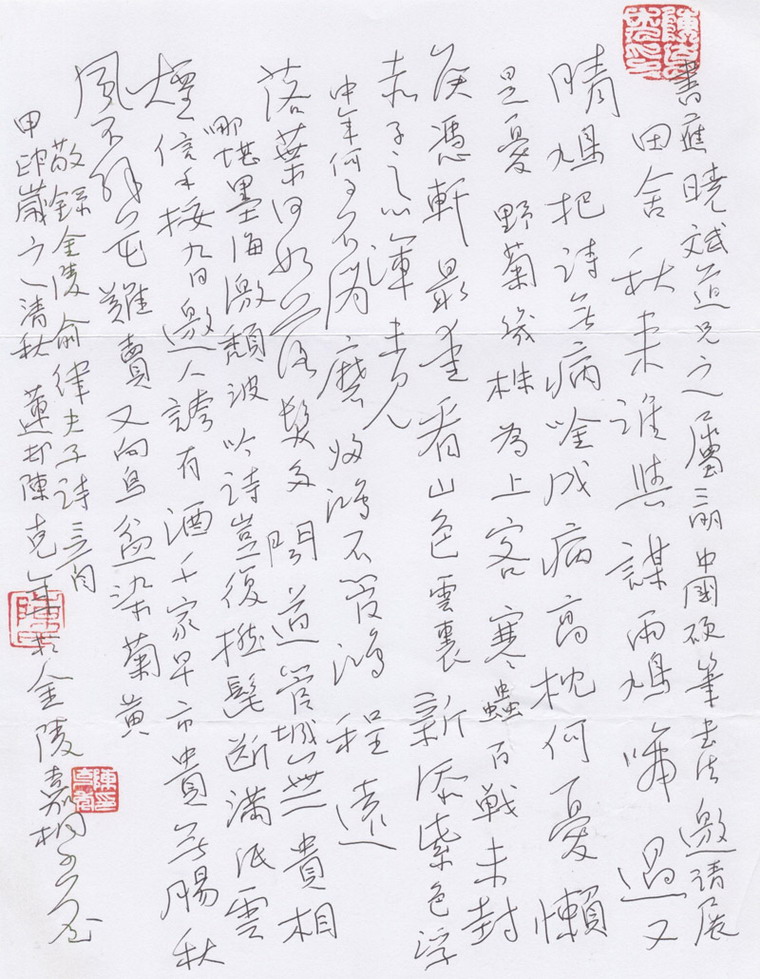 書應曉斌道兄之屬中國硬筆書法邀請展
田舍秋來誰與謀雨鳩啼過又
晴鳩把詩無病唫成病高枕何憂懶
是憂野菊幾株為上客寒蟲百戰未封
侯憑軒最重看山色雲裏新添紫色浮
赤子之心渾未見
中年何事不消磨鴻不管鴻程遠
落葉何如落髮多聞道管城無貴相
哪堪墨海激頹波吟詩豈復撚髭斷滿紙雲
煙信手挼九日邀人誇有酒千家早市貴無腸秋
風不解花難賣又向烏盆染菊黃
敬錄金陵俞律夫子詩三首
歲之清秋蓮邨陳克年於金陵嘉桐